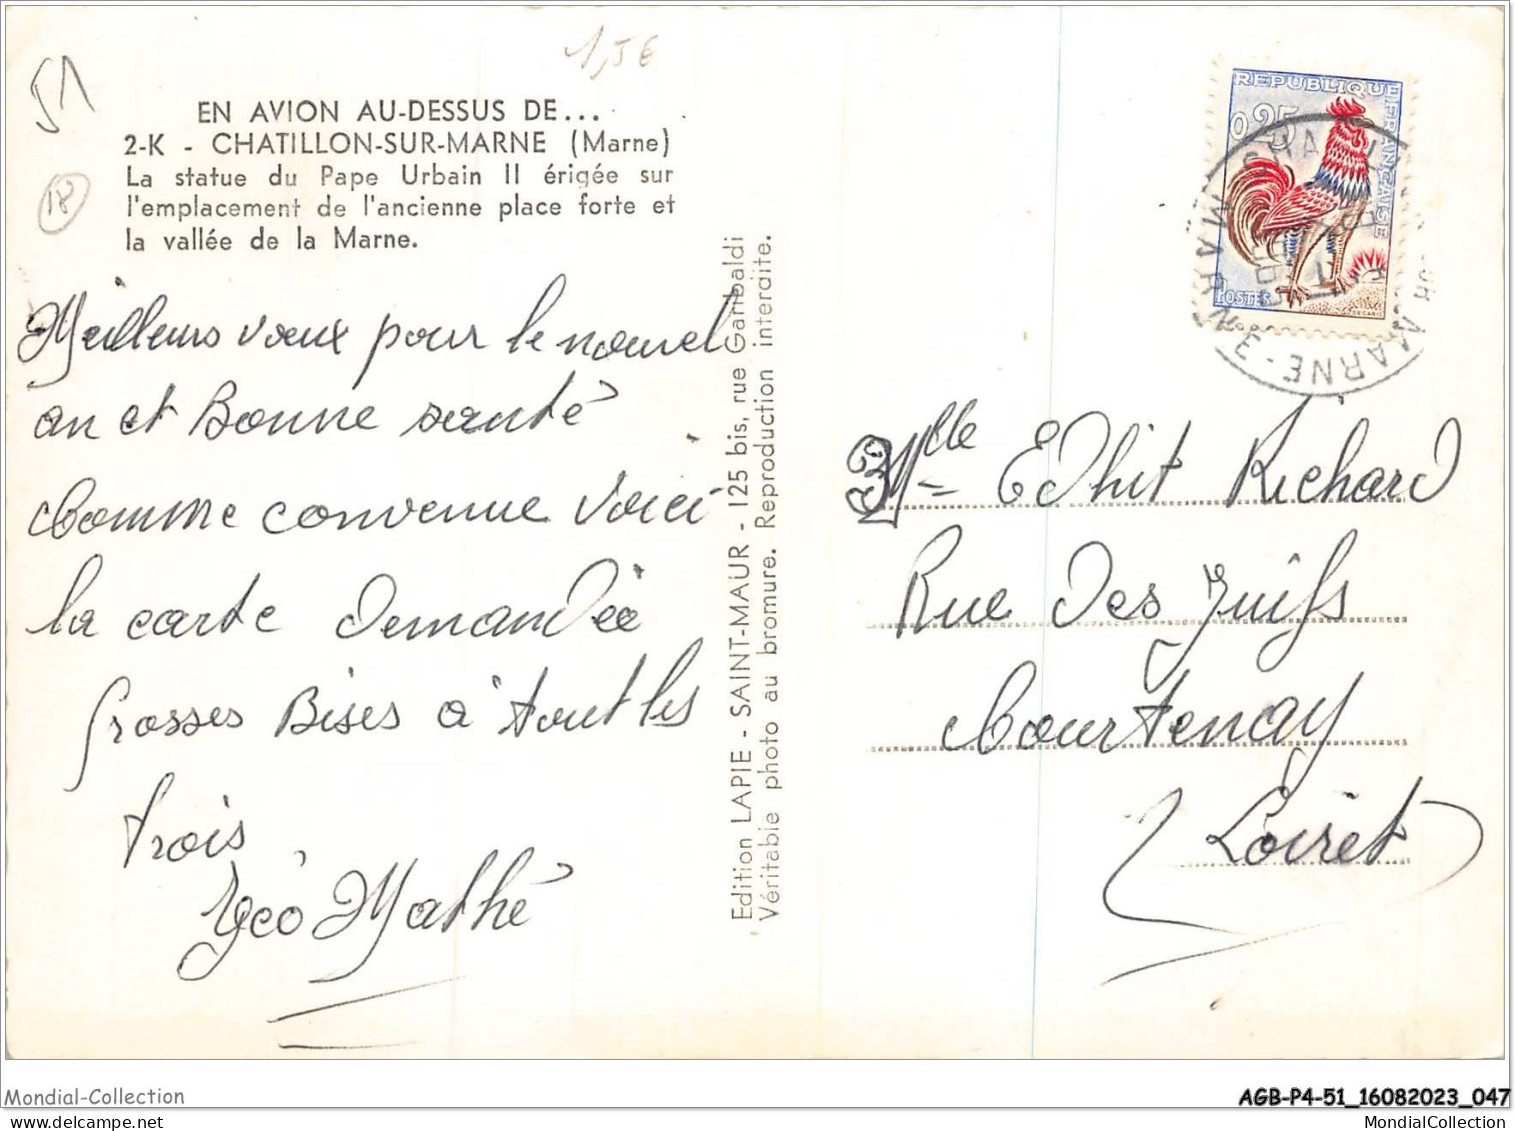 51
1,5€
18
EN AVION AU-DESSUS DE...
2-K - CHATILLON-SUR-MARNE (Marne)
La statue du Pape Urbain II érigée sur
l'emplacement de l'ancienne place forte et
la vallée de la Marne.
Meilleurs vœux pour le nouvel
an et Bonne santé
Comme convenue voici
la carte demandée
Grosses Bises à tout les
trois
Géo Mathé
Edition LAPIE - SAINT-MAUR - 125 bis, rue Garibaldi
Véritable photo au bromure. Reproduction interdite.
REPUBLIQUE FRANÇAISE
0,25
POSTES
DECARIS
MARNE
Mlle Edhit Richard
Rue Des Juifs
Courtenay
Loiret
Mondial-Collection
AGB-P4-51_16082023_047
MondialCollection